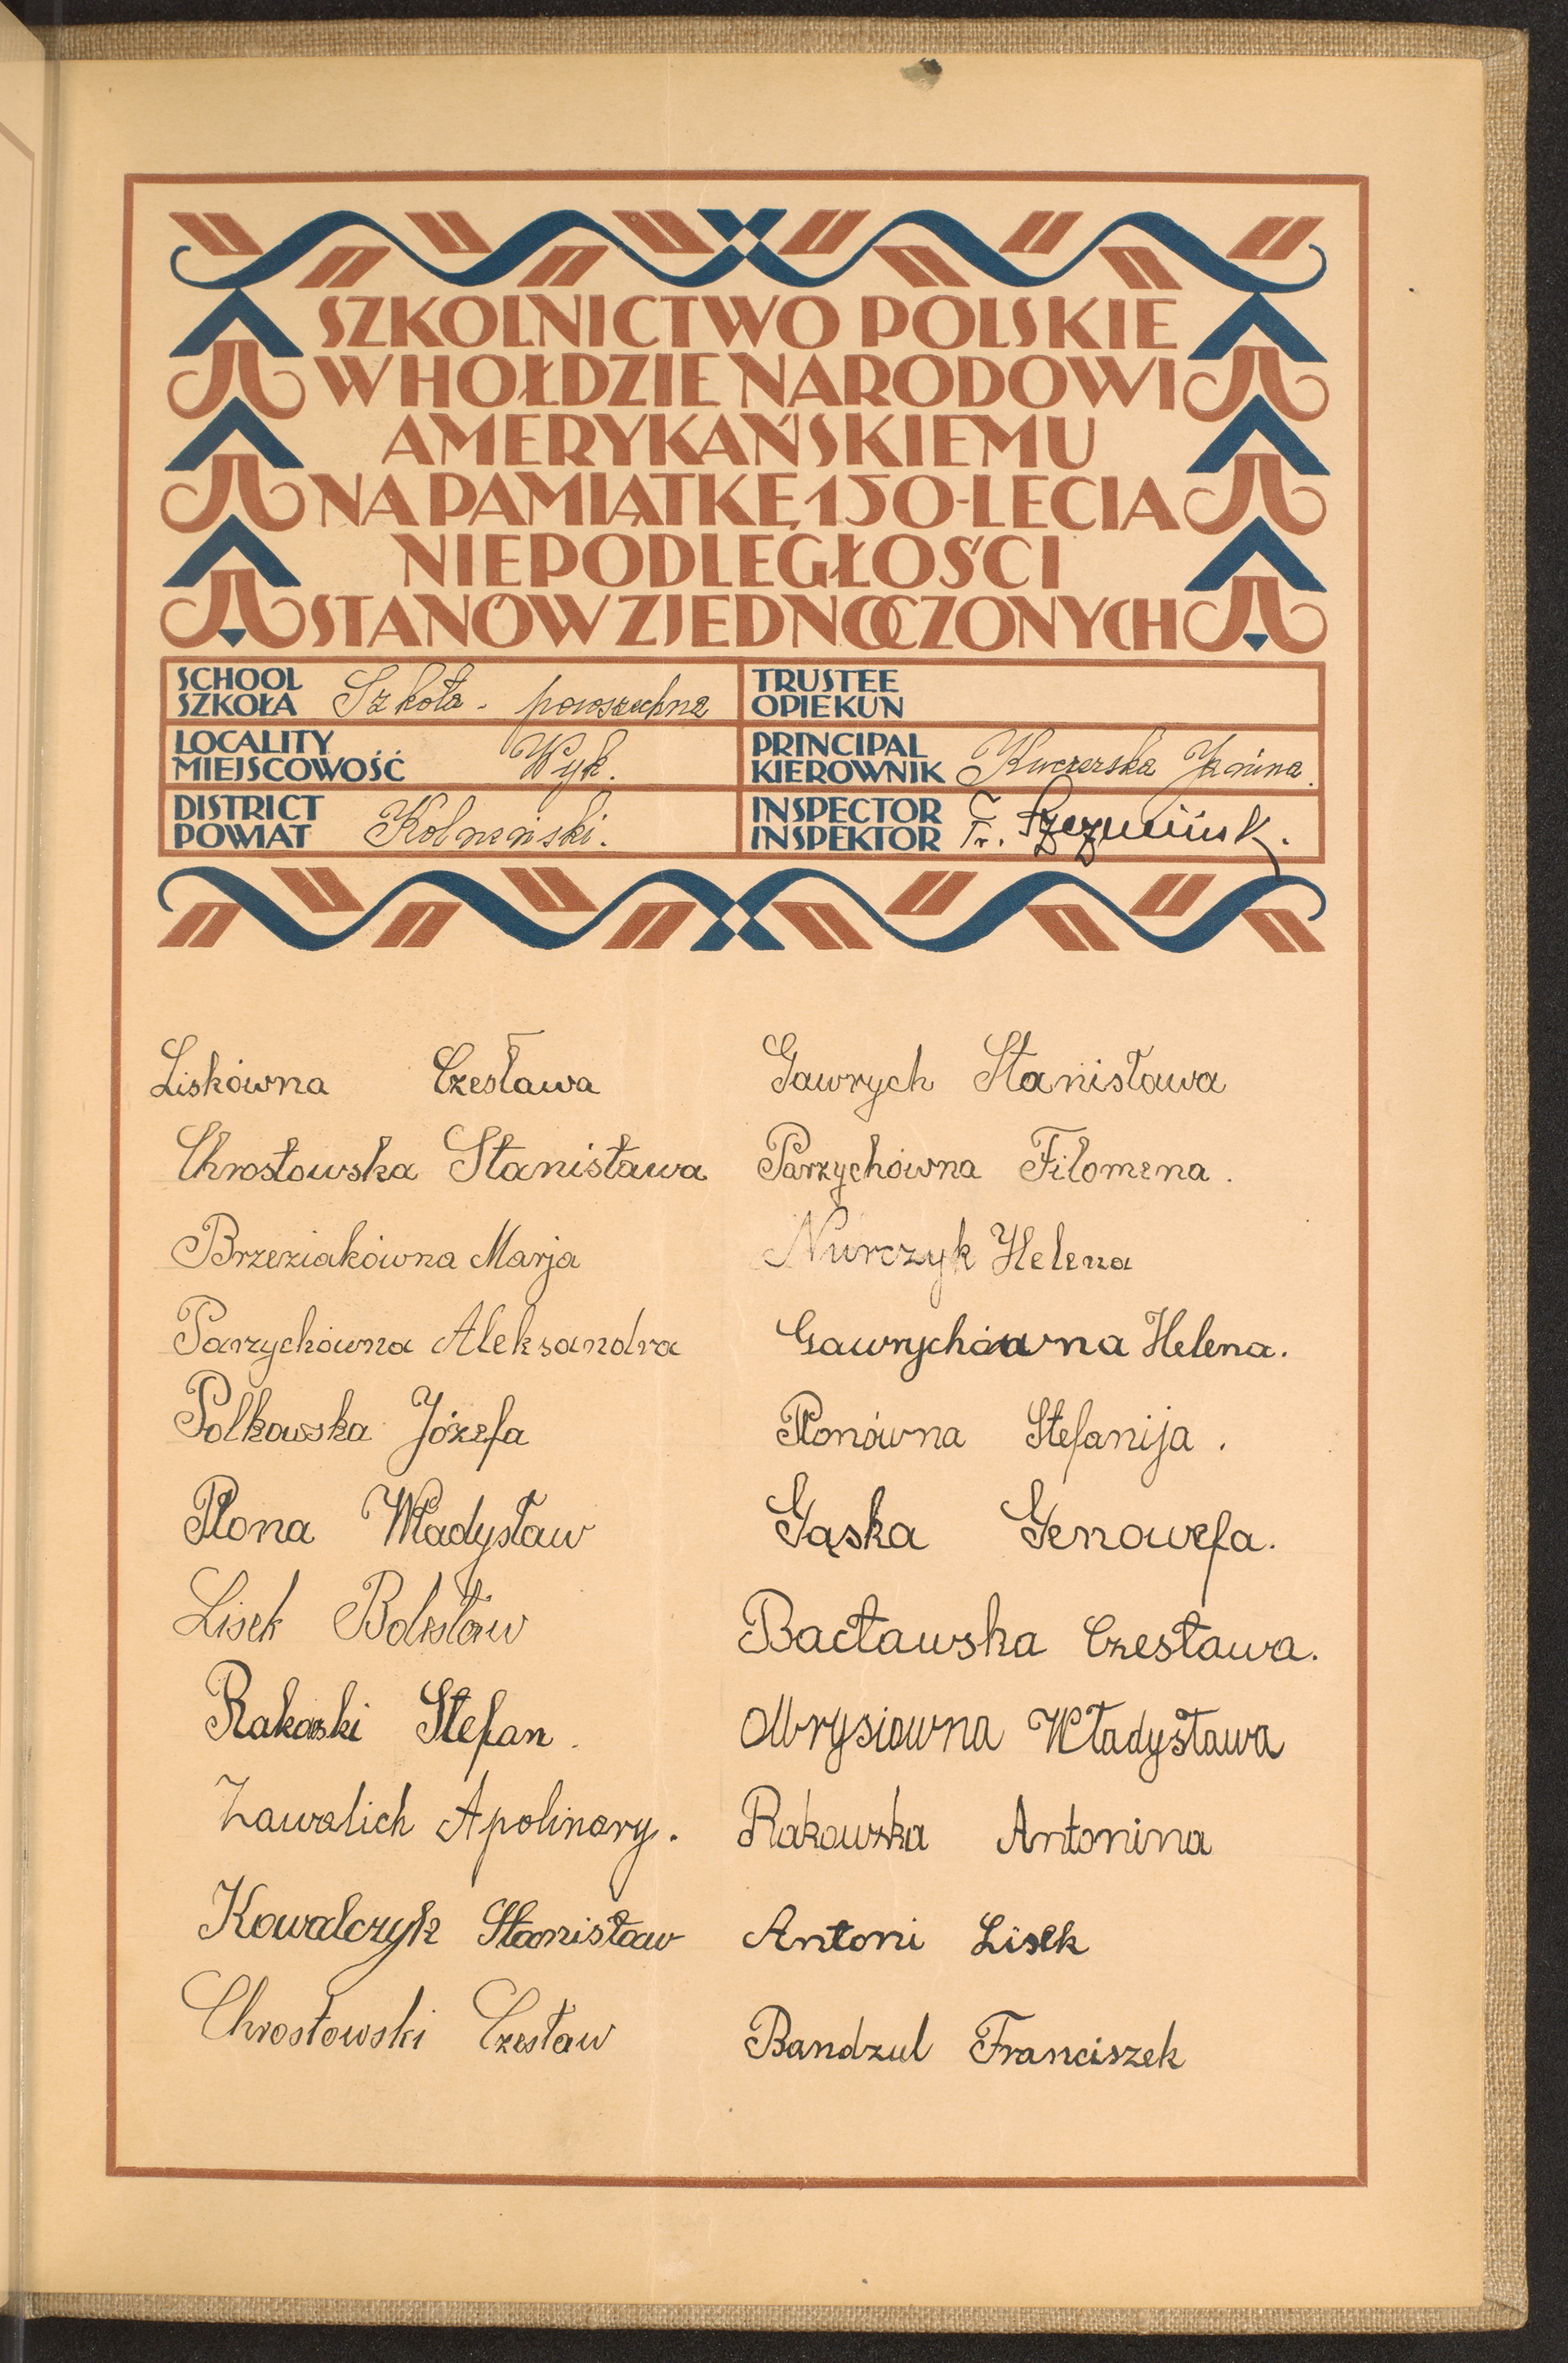 SZKOLNICTWO POLSKIE
W HOŁDZIE NARODOWI
AMERYKAŃSKIEMU
NA PAMIĄTKĘ 150-LECIA
NIEPODLEGŁOŚCI
STANÓW ZJEDNOCZONYCH
SCHOOL
SZKOŁA Szkoła - powszechna
LOCALITY
MIEJSCOWOŚĆ Wyk.
DISTRICT
POWIAT Kolneński.
TRUSTEE
OPIEKUN
PRINCIPAL
KIEROWNIK Kuczerska Janina.
INSPECTOR
INSPEKTOR Fr.
Liskówna Czesława
Chrostowska Stanisława
Brzeziakówna Marja
Parzychówna Aleksandra
Polkowska Józefa
Płona Władysław
Lisek Bolesław
Rakowski Stefan.
Zawalich Apolinary.
Kowalczyk Stanisław
Chrostowski Czesław
Gawrych Stanisława
Parzychówna Filomena.
Nurczyk Helena
Gawrychówna Helena.
Płonówna Stefanija.
Gąska Genowefa.
Bacławska Czesława.
Olbrysiowna Władysława
Rakowska Antonina
Antoni Lisek
Bandzul Franciszek